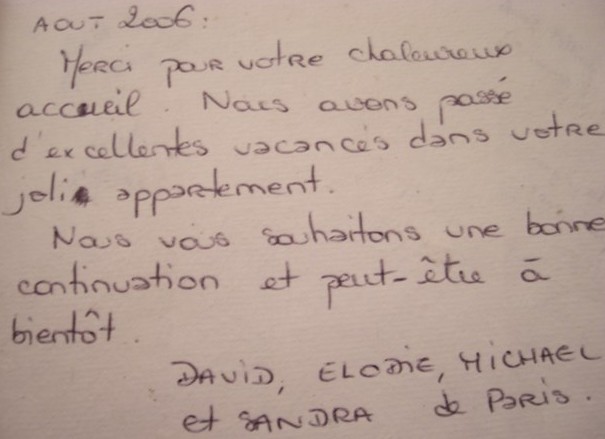 AOUT 2006:
Merci pour votre chaleureux
accueil. Nous avons passé
d'excellentes vacances dans votre
joli appartement.
Nous vous souhaitons une bonne
continuation et peut-être à
bientôt.
DAVID, ELODIE, MICHAEL
et SANDRA de Paris.